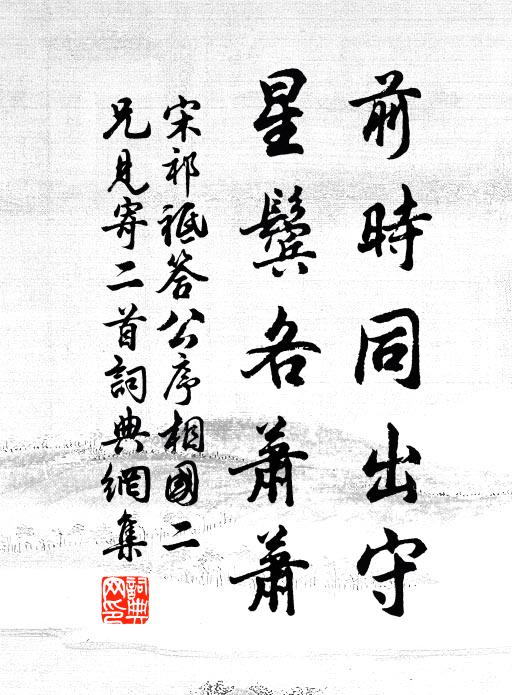 前時同出守
星鬢各蕭蕭
宋祁祗答公序相國二
兄見寄二首詞典網集
詞典
网印